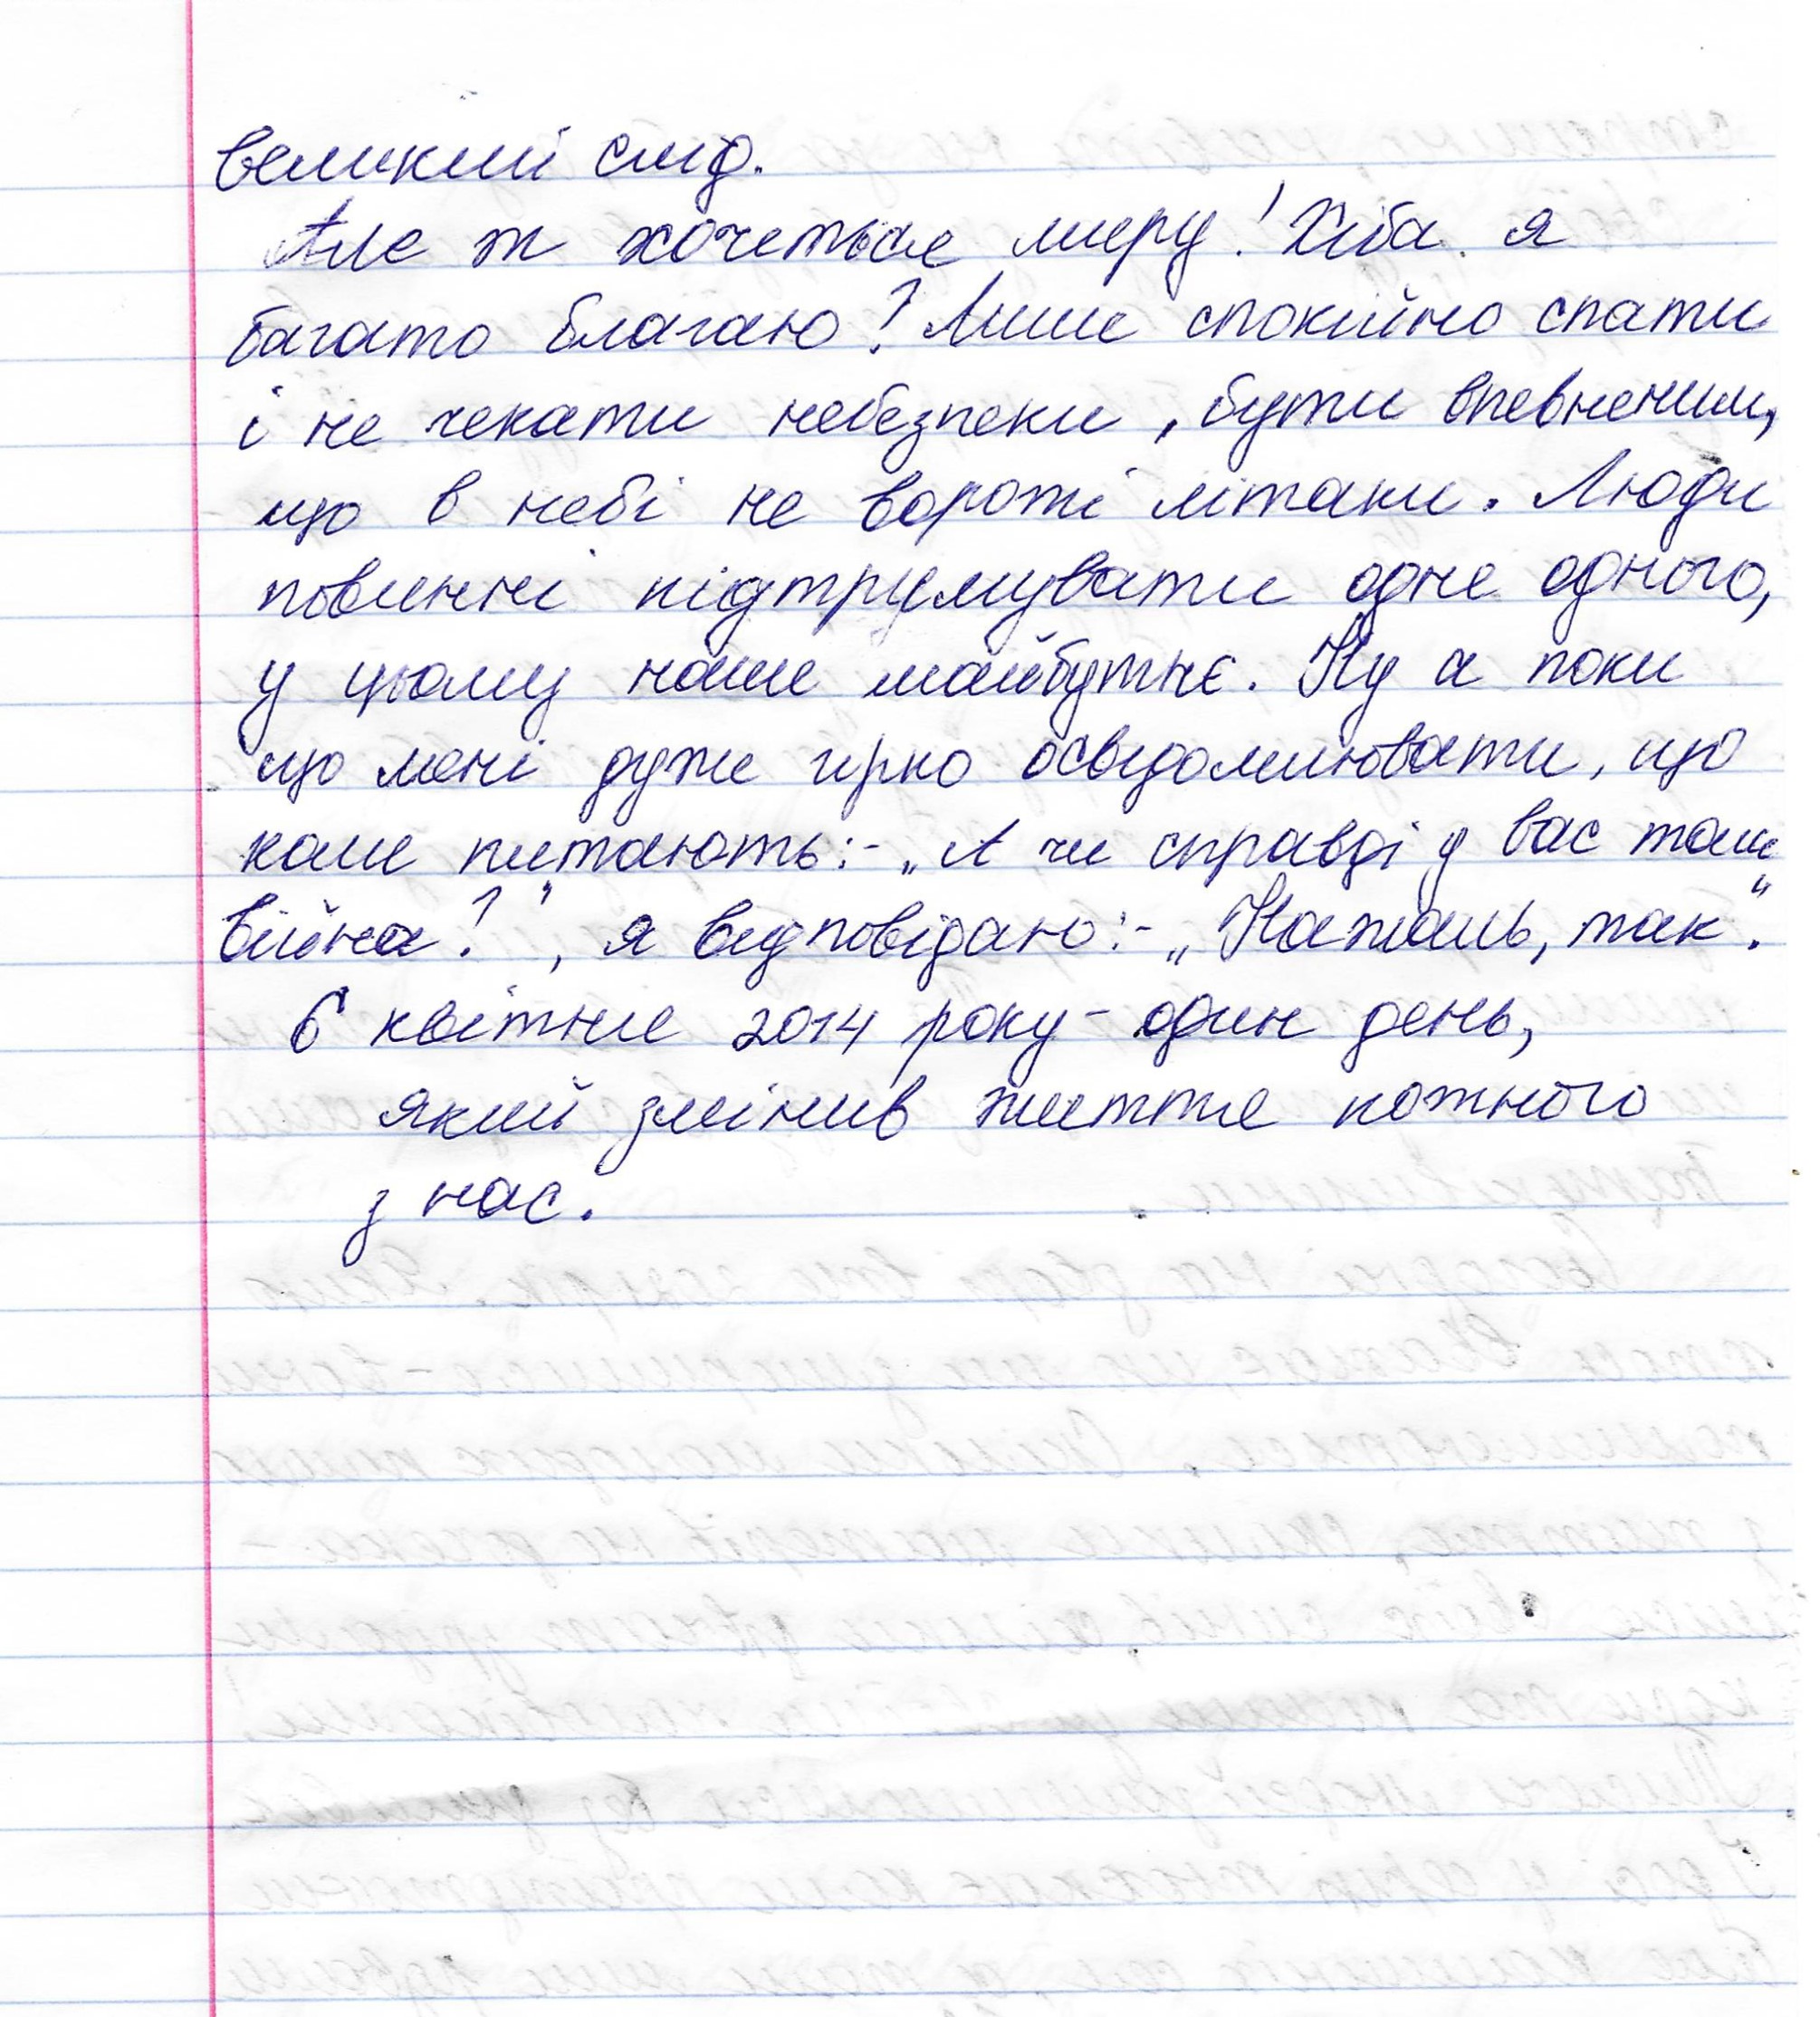 великий слід.
Але ж хочеться миру! Хіба я
багато благаю? Лише спокійно спати
і не чекати небезпеки, бути впевненим,
що в небі не ворожі літаки. Люди
повинні підтримувати одне одного,
у цьому наше майбутнє. Ну а поки
що мені дуже гірко осведомлювати, що
коли питають:- „А чи справді у вас там
війна?", я відповідаю:- „На жаль, так".
6 квітня 2014 року - один день,
який змінив життя кожного
з нас.